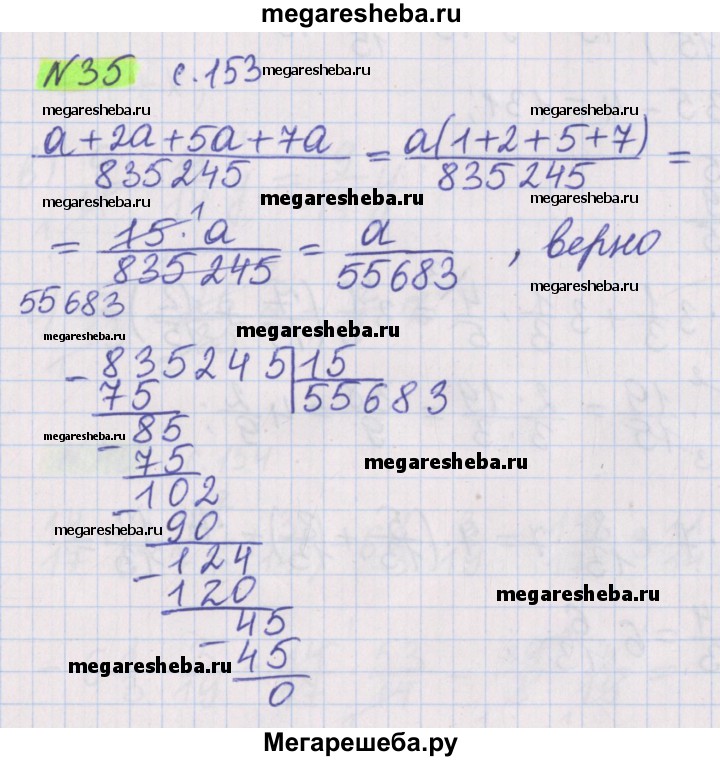 megaresheba.ru
№35 с.153 megaresheba.ru
megaresheba.ru megaresheba.ru megaresheba.ru
a+2a+5a+7a / 835245 = a(1+2+5+7) / 835245 =
megaresheba.ru megaresheba.ru megaresheba.ru
= 15·a / 835245 = a / 55683 , верно
1
megaresheba.ru
55683
megaresheba.ru megaresheba.ru megaresheba.ru
- 835245 | 15
75 | 55683
- 85
megaresheba.ru
75
megaresheba.ru
- 102
90
megaresheba.ru
- 124
120
megaresheba.ru
45
- 45
megaresheba.ru
0
Мегарешеба.ру